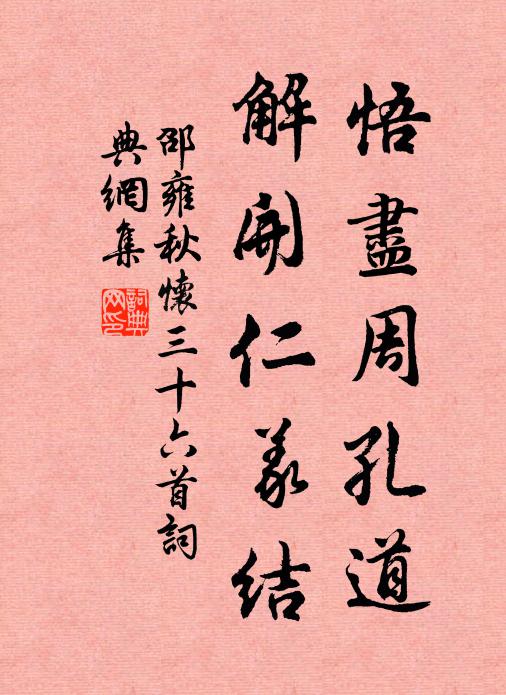 悟盡周孔道
解開仁義結
邵雍秋懷三十六首詞
典網集
詞典网印